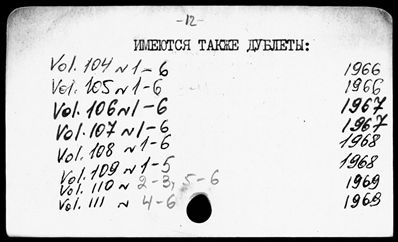 -12-
ИМЕЮТСЯ ТАКЖЕ ДУБЛЕТЫ:
Vol. 104 N 1-6 1966
Vol. 105 N 1-6 1966
Vol. 106 N 1-6 1967
Vol. 107 N 1-6 1967
Vol. 108 N 1-6 1968
Vol. 109 N 1-5 1968
Vol. 110 N 2-3, 5-6 1969
Vol. 111 N 4-6 1969